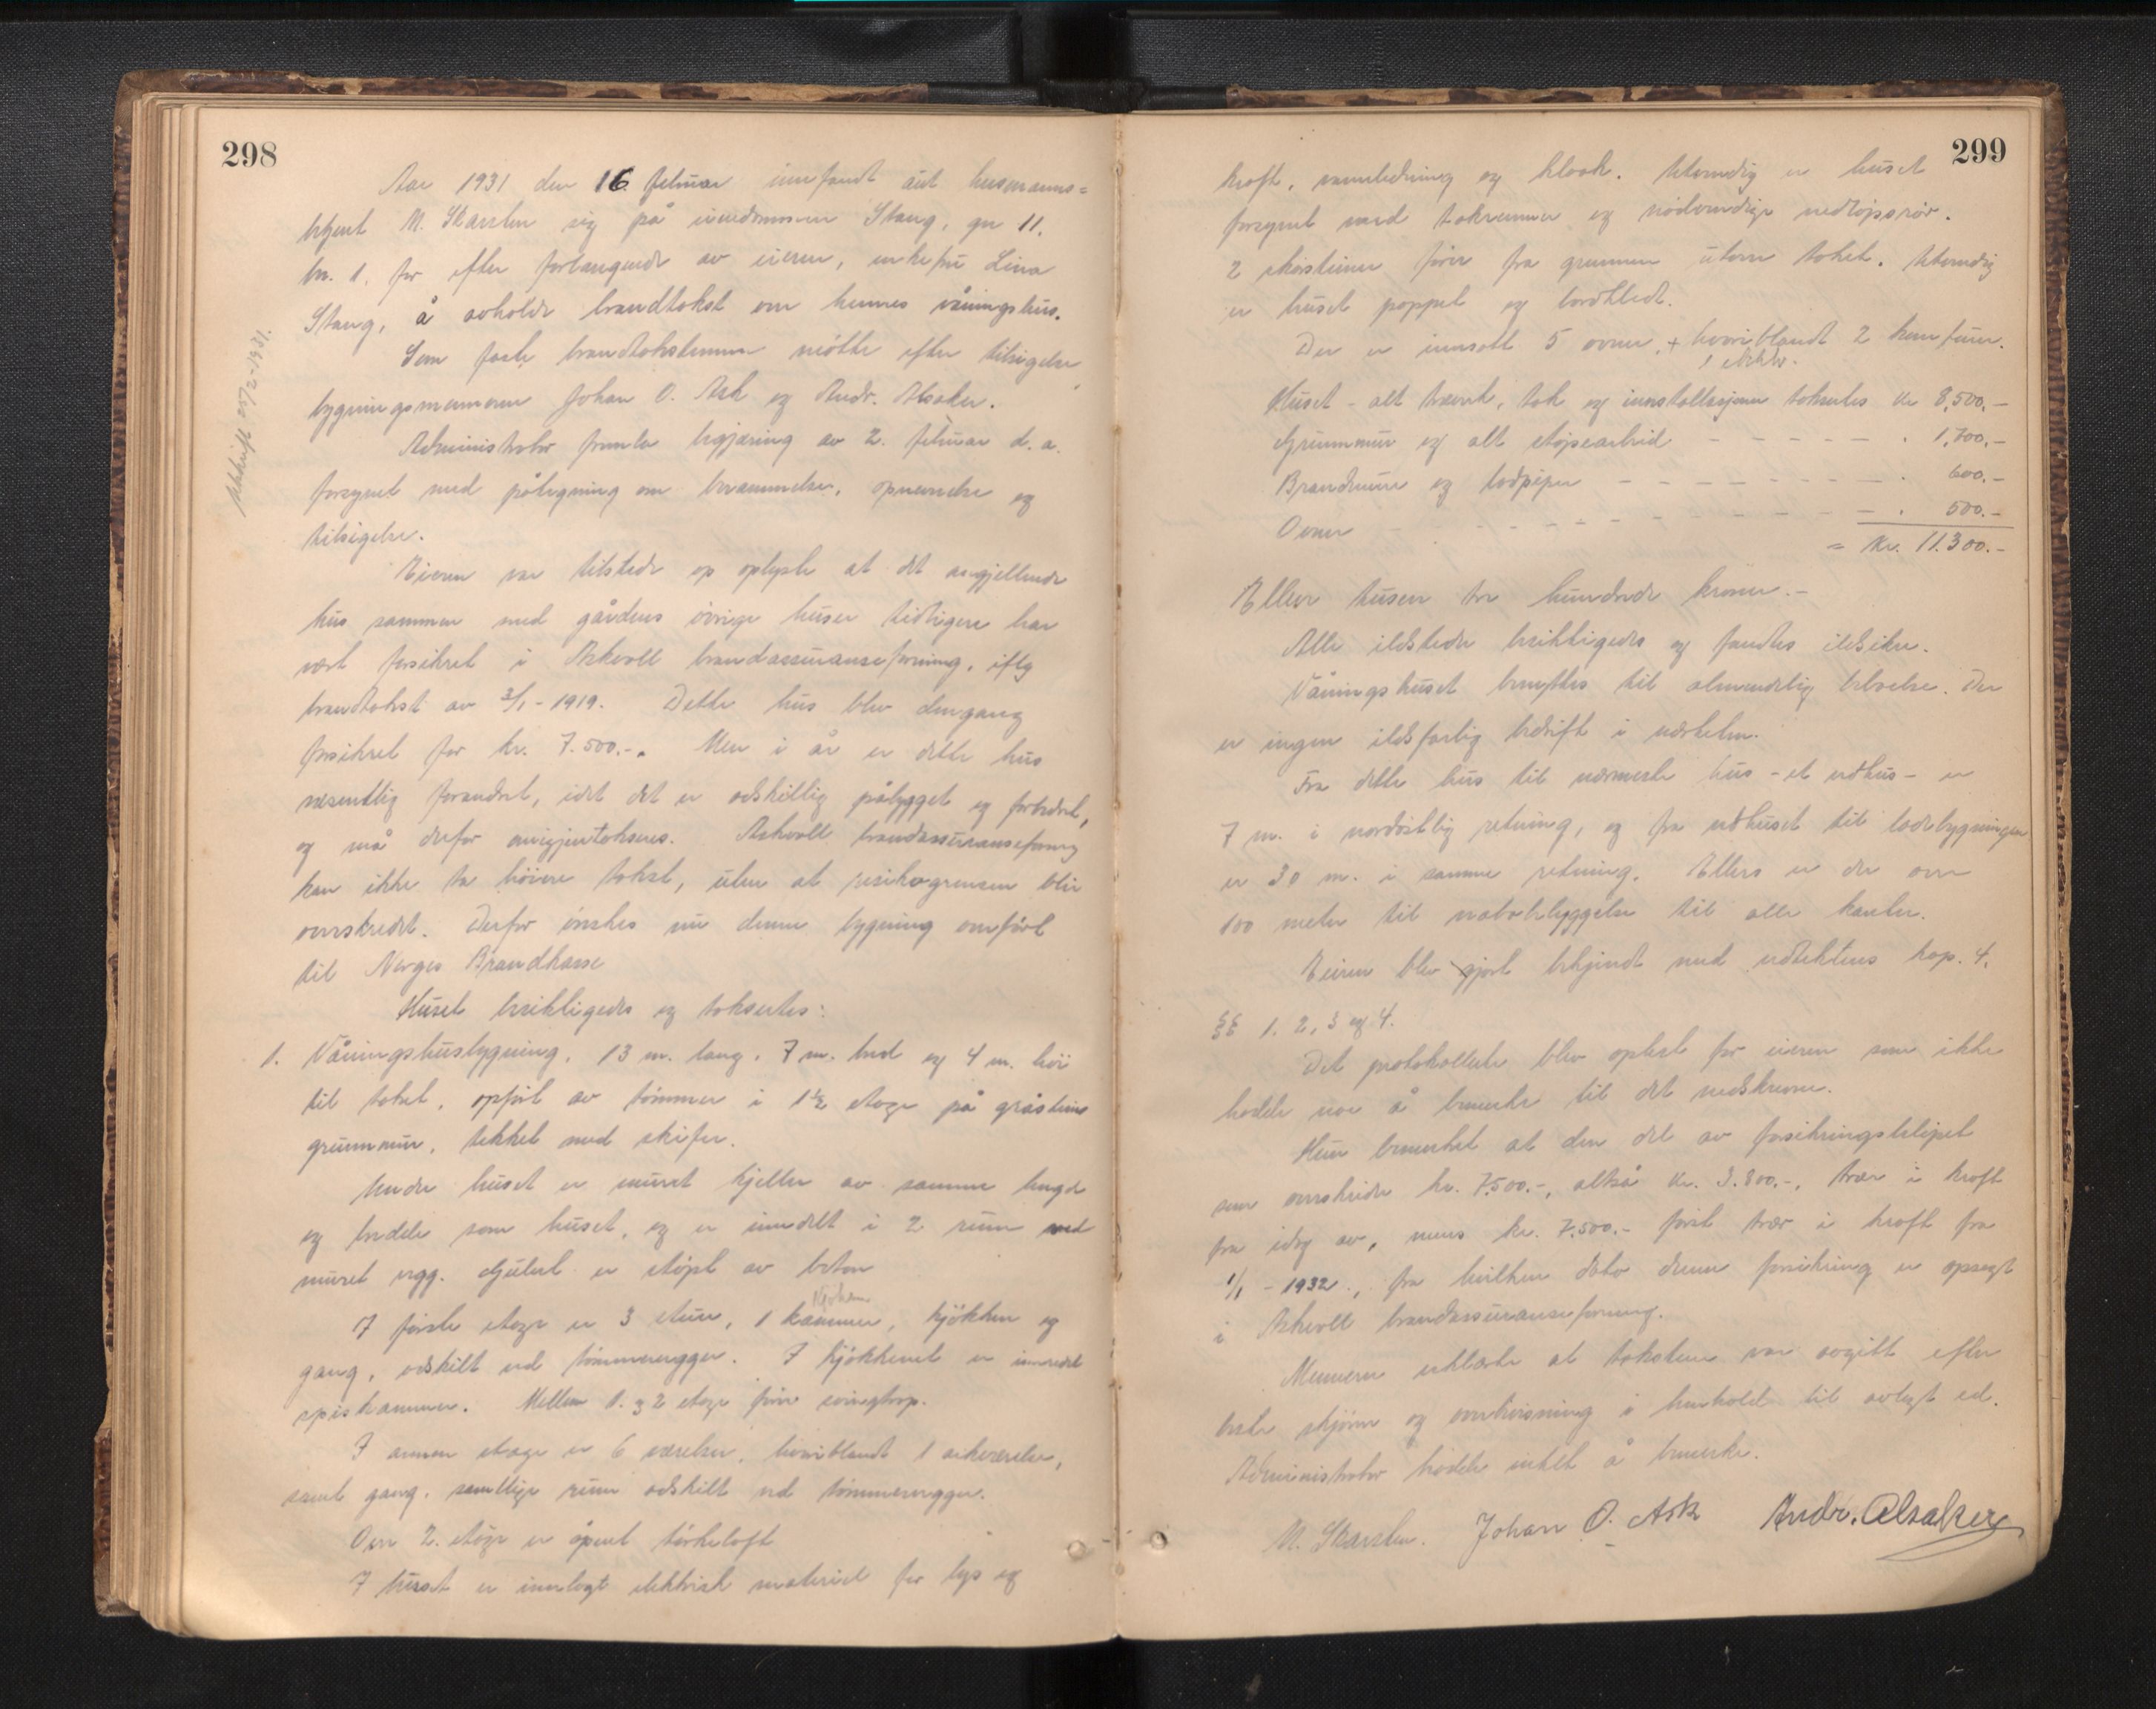 298
Aar 1931 den 16 februar innfandt aut husmanns=
betjent N. Skarsten sig på eiendommen Stang, gn 11.
bn. 1. for efter forlangende av eieren, enkefru Lina
Stang, å avholde brandtakst over hennes våningshus.
Som faste brandtakstmenn møtte efter tilsigelse
bygningsmennene Johan O. Ask og Andr. Alsaker.
Administrator fremla begjæring av 2. februar d. a.
forsynet med påtegning om berammelse, opnevnelse og
tilsigelse.
Avskrift 25/2-1931.
Eieren var tilstede op oplyste at det angjellende
hus sammen med gårdens øvrige huser tidligere har
vært forsikret i Askvoll brandassuranseforening, iflg
brandtakst av 3/1-1919. Dette hus blev dengang
forsikret for kr. 7.500.-. Men i år er dette hus
vesentlig forandret, idet det er adskillig påbygget og forbedret,
og må derfor omigjentakseres. Askvoll brandassuranseforening
kan ikke ta høiere takst, uten at risikogrensen blir
overskredet. Derfor ønskes nu denne bygning overført
til Norges Brandkasse
Huset besiktigedes og taksertes:
1. Våningshusbygning, 13 m. lang, 7 m. bred og 4 m. høi
til taket, opført av tømmer i 1½ etage på gråsteins
grunnmur, tekket med skifer.
Under huset er muret kjeller av samme lengde
og bredde som huset, og er inndelt i 2 rum med
muret vegg. Gulvet er støpt av beton
I første etage er 3 stuer, 1 kammer, kjøkken og
gang, adskilt ved tømmervegger. I kjøkkenet er innredet
spiskammer. Mellem 1. og 2 etage fører svingtrap.
I annen etage er 6 værelser, hvoriblandt 1 arkværelse,
samt gang, samtlige rum adskilt ved tømmervegger.
Over 2. etage er åpent tørkeloft
I huset er innlagt elektrisk materiel for lys og
299
kraft, vannledning og kloak. Utvendig er huset
forsynet med takrenner og nødvendige nedløpsrør.
2 skorsteiner fører fra grunnen utover taket. Utvendig
er huset pappet og bordkledt.
Der er innsatt 5 ovner, + hvoriblandt 2 komfurer.
1 elektr.
Huset - alt træverk, tak og innstallasjoner takseres kr 8.500.-
Grunnmur og alt støpearbeid - - - - - . 1.700.-
Brandmure og lodpiper - - - - - - - - . 600.-
Ovner - - - - - - - - - - - . 500.-
= kr. 11.300.-
Elleve tusen tre hundrede kroner.-
Alle ildsteder besiktigedes og fandtes ildsikre.
Våningshuset benyttes til almindelig beboelse. Der
er ingen ildsfarlig bedrift i nærheten.
Fra dette hus til nærmeste hus - et udhus - er
7 m. i nordøstlig retning, og fra udhuset til ladebygningen
er 30 m. i samme retning. Ellers er der over
100 meter til nabobebyggelse til alle kanter.
Eieren blev gjort bekjendt med udtektens kap. 4.
§§ 1. 2, 3 og 4.
Det protokollerte blev oplest for eieren som ikke
hadde noe å bemerke til det nedskrevne.
Hun bemerket at den del av forsikringsbeløpet
som overskrider kr. 7.500.-, altså kr. 3.800.-, trær i kraft
fra idag av, mens kr. 7.500.- først trær i kraft fra
1/1 - 1932., fra hvilken dato denne forsikring er opsagt
i Askvoll brandassuranseforening.
Mennene erklærte at taksten var avgitt efter
beste skjønn og overbevisning i henhold til avlagt ed.
Administrator hadde intet å bemerke.
N. Skarsten. Johan O. Ask Andr. Alsaker